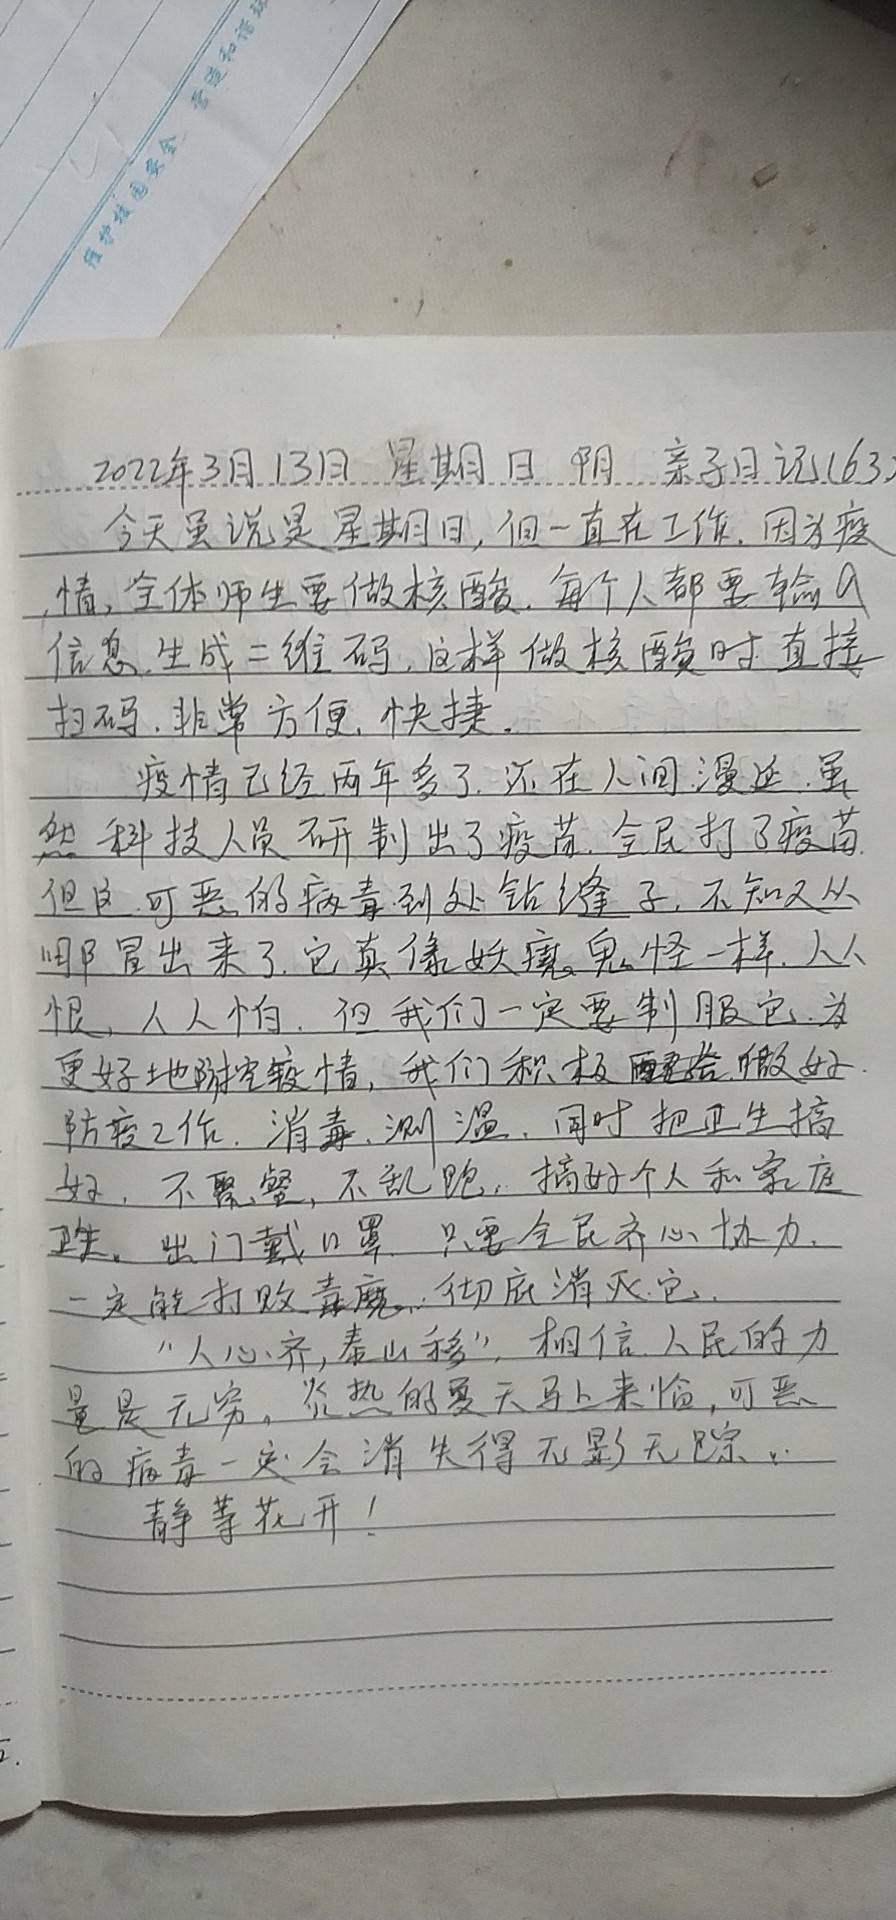 维护校园安全 营造和谐
2022年3月13日 星期日 阴 亲子日记(63)
今天虽说是星期日,但一直在工作.因为疫
情,全体师生要做核酸.每个人都要输入
信息.生成二维码,这样做核酸时直接
扫码.非常方便.快捷.
疫情已经两年多了.还在人间漫延.虽
然科技人员研制出了疫苗.全民打了疫苗.
但这可恶的病毒到处钻缝子,不知又从
哪冒出来了.它真像妖魔鬼怪一样.人人
恨,人人怕.但我们一定要制服它.为
更好地防控疫情,我们积极 做好
防疫工作.消毒、测温.同时把卫生搞
好.不聚餐,不乱跑.搞好个人和家庭
卫生.出门戴口罩.只要全民齐心协力.
一定能打败毒魔.彻底消灭它.
“人心齐,泰山移”,相信人民的力
量是无穷,炎热的夏天马上来临,可恶
的病毒一定会消失得无影无踪.
静等花开!